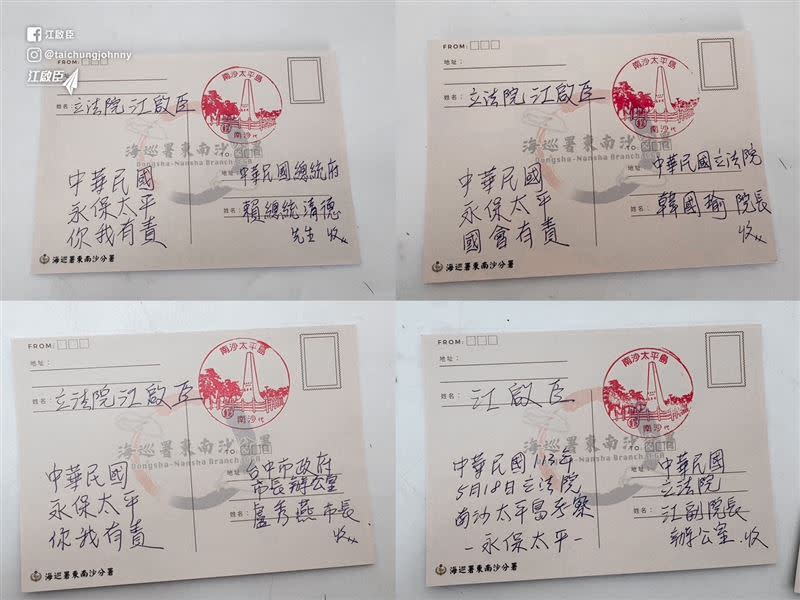 江啟臣
@taichungjohnny
江啟臣
FROM:
地址：
姓名： 立法院 江啟臣
南沙太平島
南沙 代
海巡署東南沙分署
Dongsha-Nansha Branch, CGA
TO:
中華民國
永保太平
你我有責
地址： 中華民國總統府
姓名： 賴總統清德
先生 收
海巡署東南沙分署
FROM:
地址：
姓名： 立法院 江啟臣
南沙太平島
南沙 代
海巡署東南沙分署
Dongsha-Nansha Branch, CGA
TO:
中華民國
永保太平
國會有責
地址： 中華民國立法院
姓名： 韓國瑜 院長
收
海巡署東南沙分署
FROM:
地址：
姓名： 立法院 江啟臣
南沙太平島
南沙 代
海巡署東南沙分署
Dongsha-Nansha Branch, CGA
中華民國
永保太平
你我有責
地址： 台中市政府
市長辦公室
姓名： 盧秀燕 市長
收
海巡署東南沙分署
FROM:
地址：
姓名： 江啟臣
南沙太平島
南沙 代
海巡署東南沙分署
Dongsha-Nansha Branch, CGA
中華民國113年
5月18日立法院
南沙太平島考察
-永保太平-
地址： 中華民國
立法院
姓名： 江副院長
辦公室 收
海巡署東南沙分署